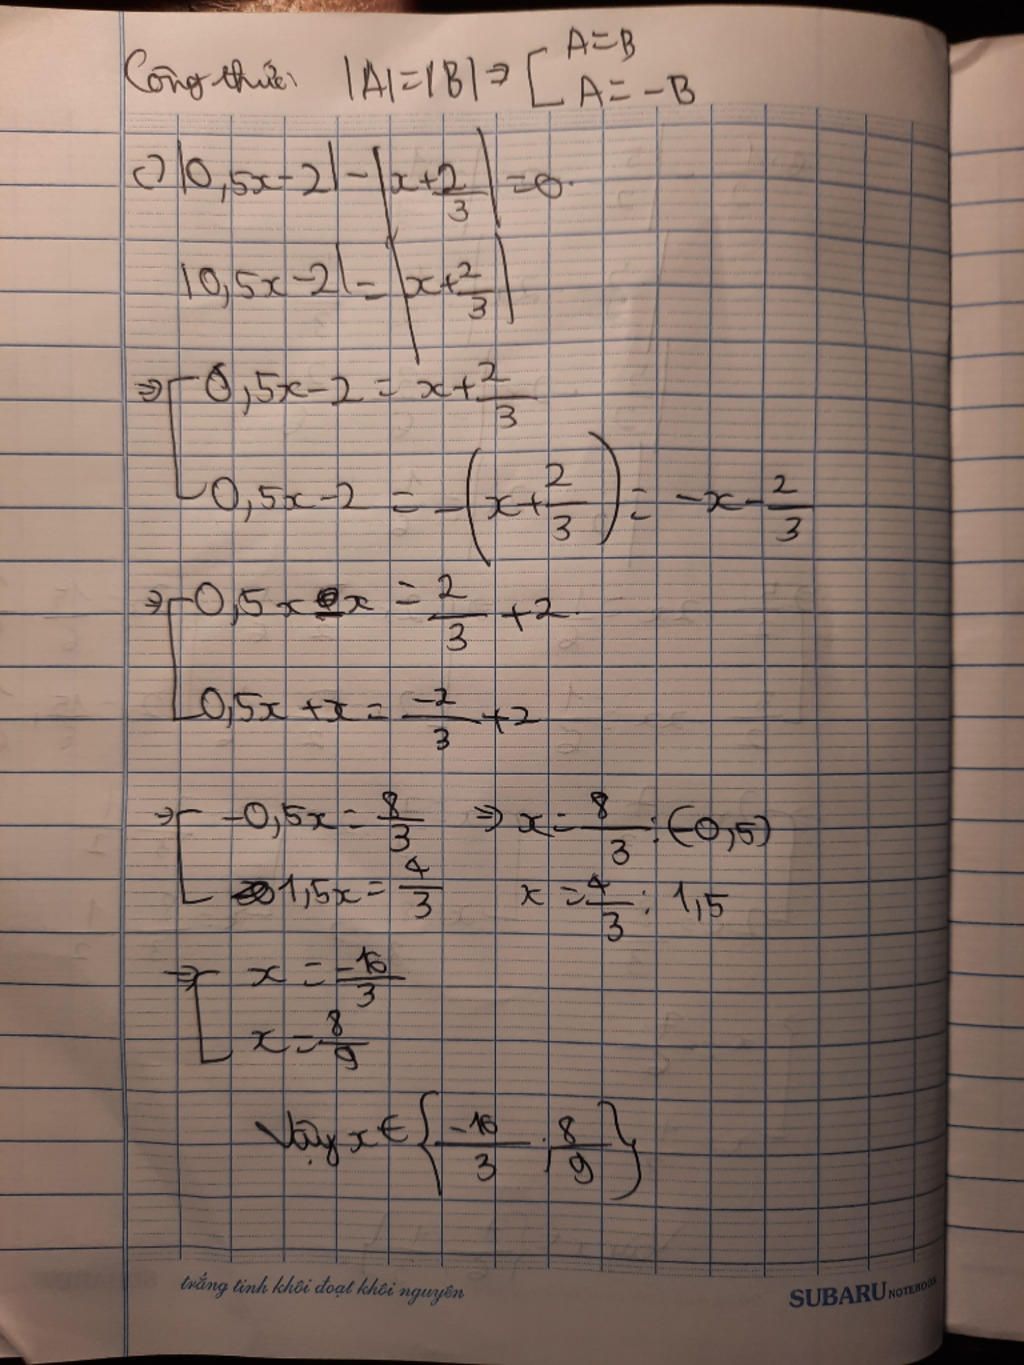 Công thức: |A|=|B| ⇒ [ A=B
A=-B
c) |0,5x-2| - |x+2/3| =0.
|0,5x-2| = |x+2/3|
⇒ [ 0,5x-2 = x+2/3
0,5x-2 = -(x+2/3) = -x-2/3
⇒ [ 0,5x-x = 2/3 +2.
0,5x+x = -2/3 +2
⇒ [ -0,5x = 8/3 ⇒ x = 8/3 : (-0,5)
1,5x = 4/3 x = 4/3 : 1,5
⇒ [ x = -16/3
x = 8/9
Vậy x ∈ { -16/3 ; 8/9 }
trắng tinh khôi đoạt khôi nguyên
SUBARU NOTEBOOK